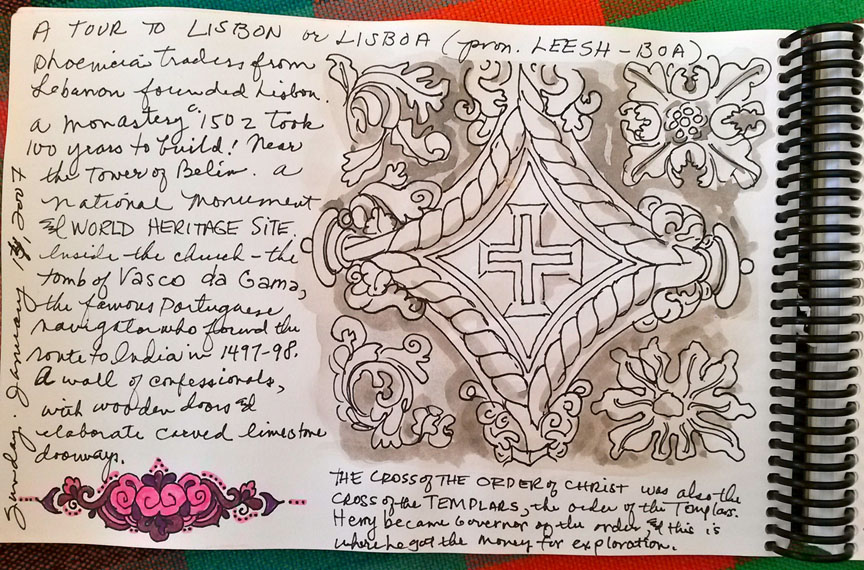 A TOUR TO LISBON or LISBOA (pron. LEESH-BOA)
Phoenicia traders from
Lebanon founded Lisbon.
a monastery c. 1502 took
100 years to build! Near
the Tower of Belin. a
National Monument
& WORLD HERITAGE SITE.
Inside the church - the
tomb of Vasco da Gama,
the famous Portuguese
navigator who found the
route to India in 1497-98.
A wall of confessionals,
with wooden doors &
elaborate carved limestone
doorways.
Sunday. January, 2007
THE CROSS of THE ORDER of CHRIST was also the
CROSS of the TEMPLARS, the order of the Templars.
Henry became Governor of the order, & this is
where he got the money for exploration.